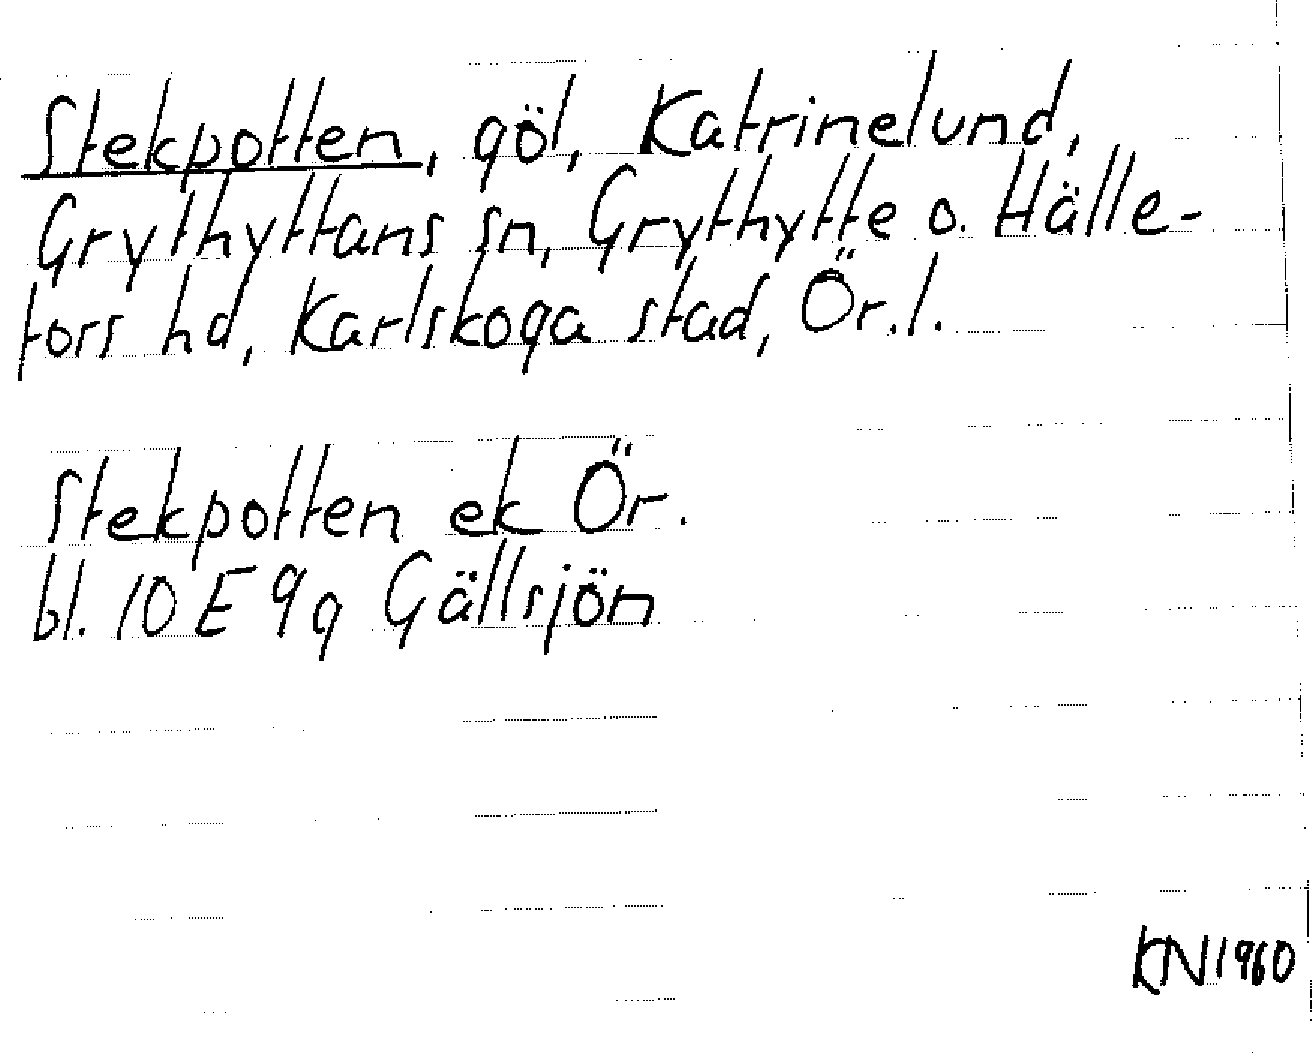 Stekpotten, göl, Katrinelund,
Grythyttans sn, Grythytte o. Hälle-
fors hd, Karlskoga stad, Ör.l.
Stekpotten ek Ör.
bl. 10 E 9g Gällsjön
KN1960